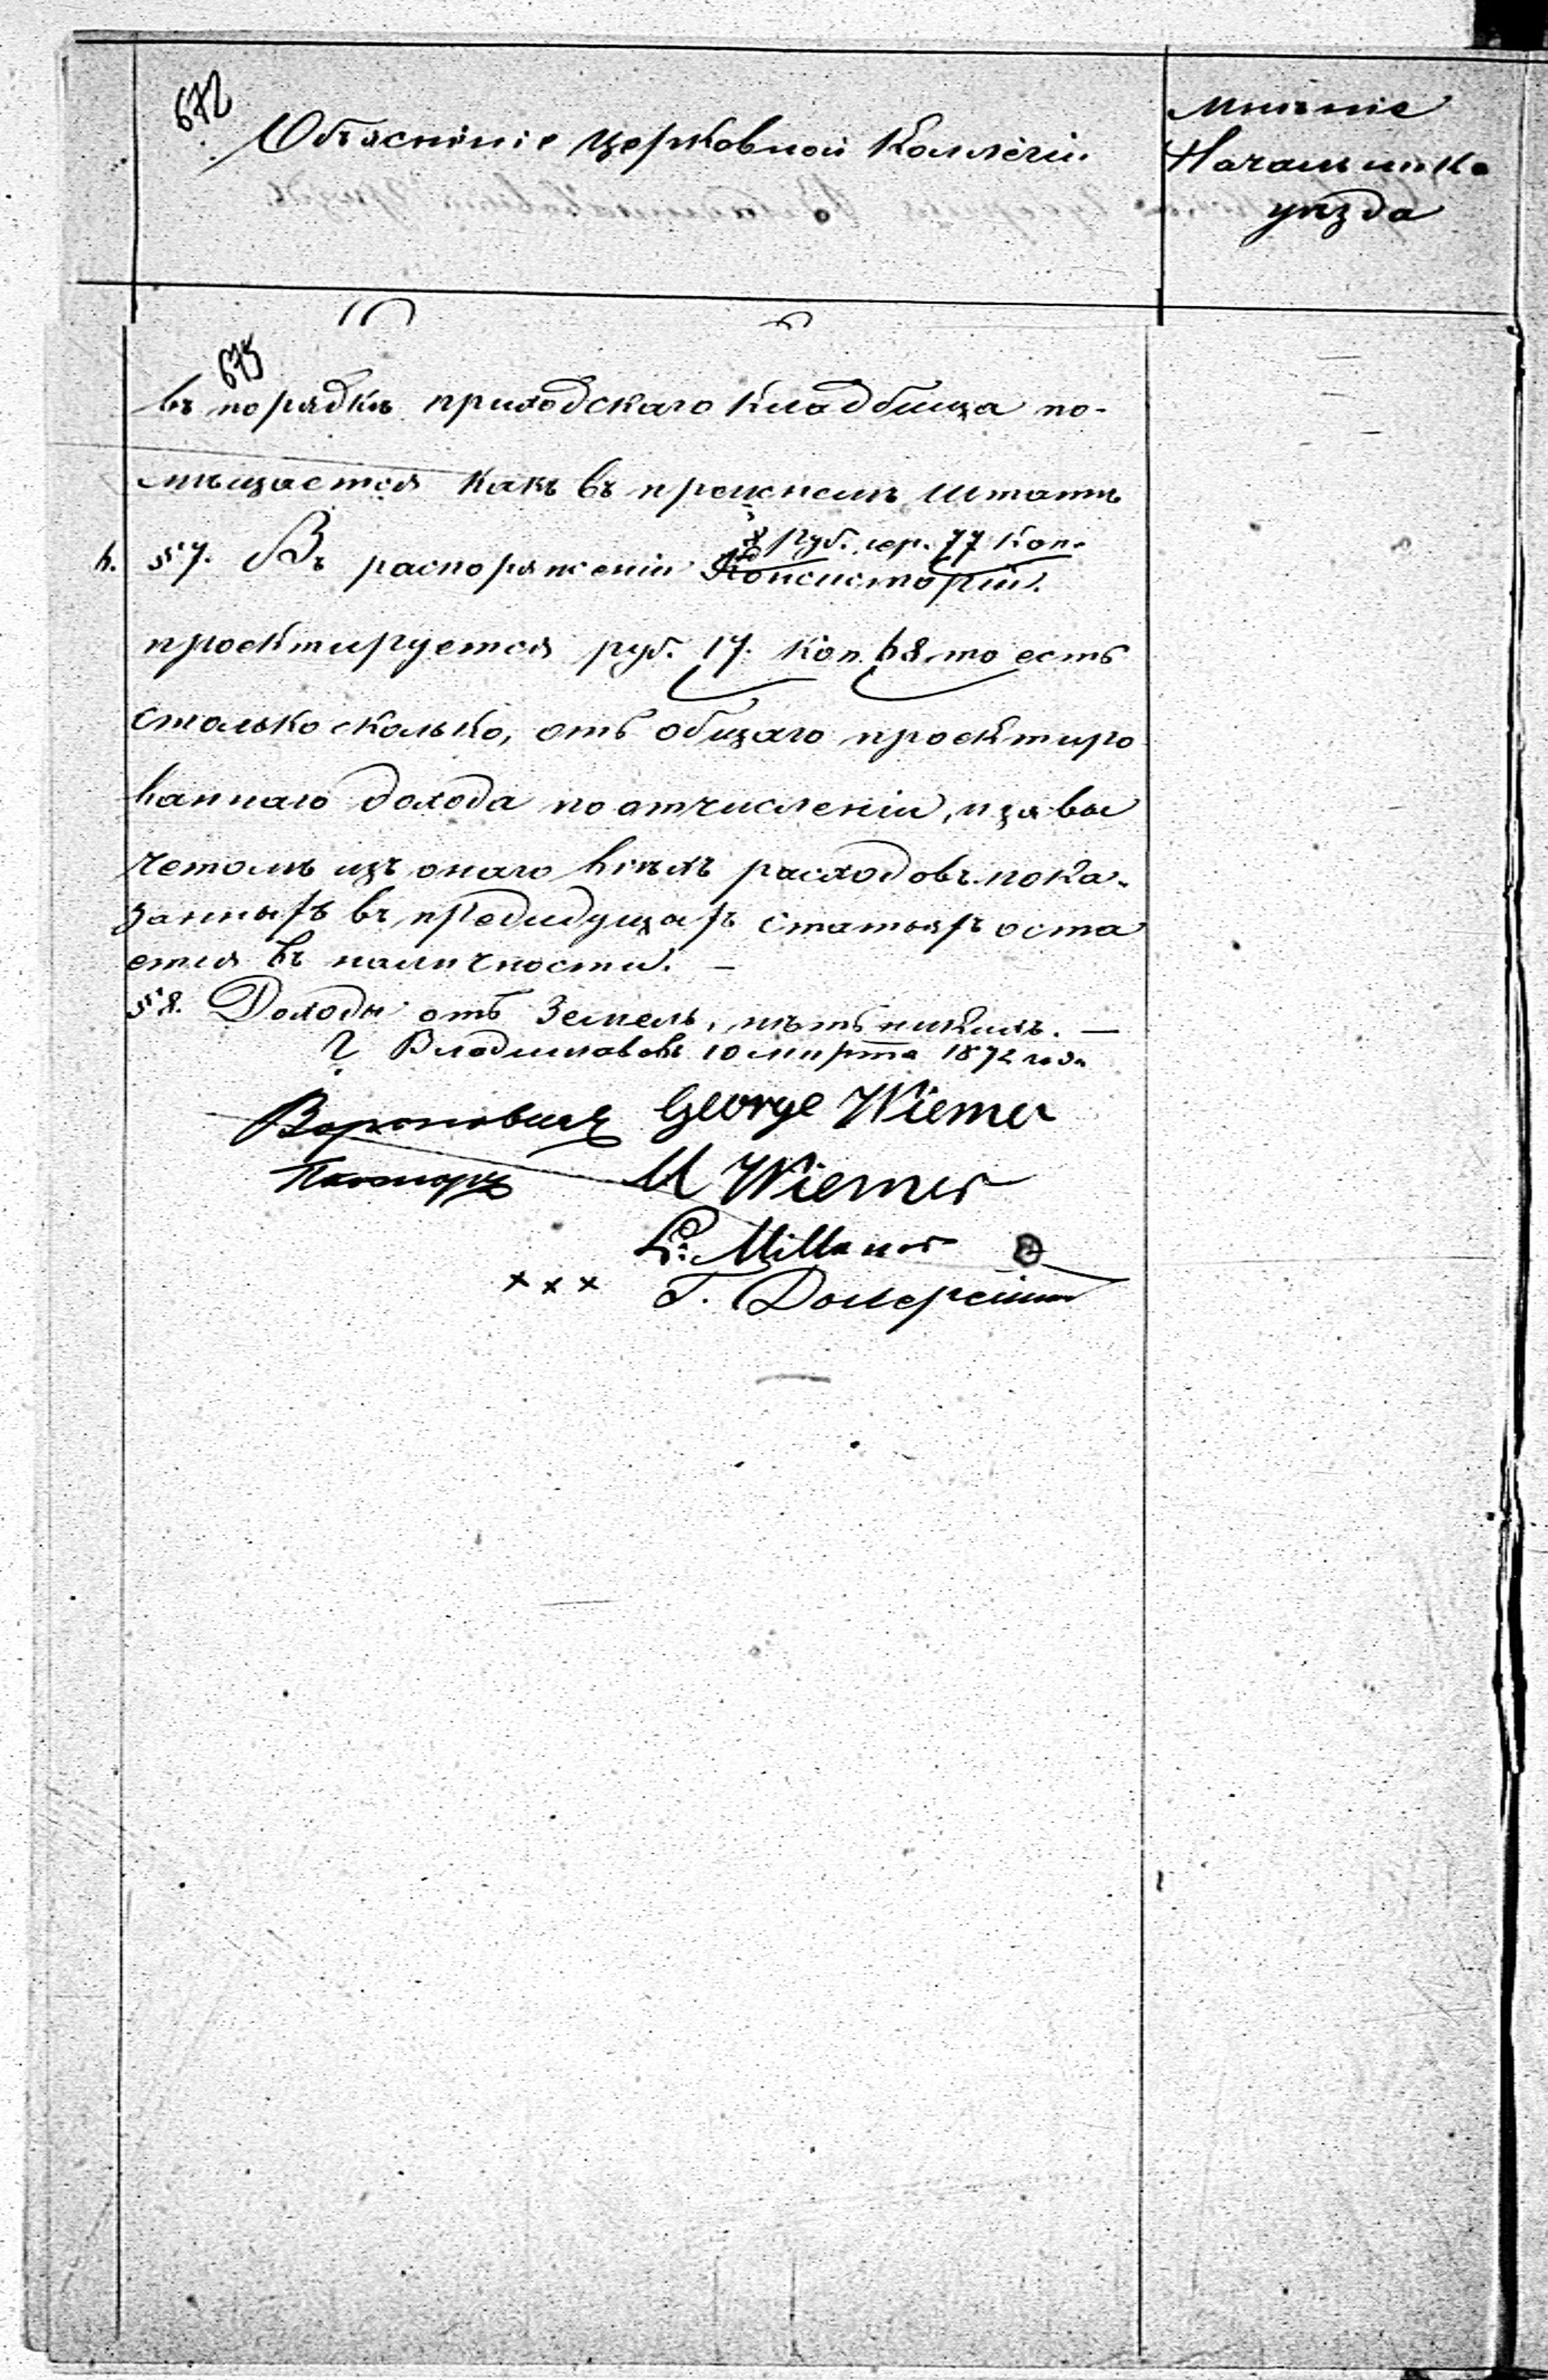 672
Объясненіе Церковной Коллегіи.
Мнѣніе
Начальника
уѣзда
675
въ порядкѣ приходскаго кладбища по-
мѣщается какъ въ прежнемъ штатѣ
руб. сер. 77 коп.
h. §7. Въ распоряженіи Консисторіи.
проектируется руб. 17. коп. 68 то есть
столько сколько, отъ общаго проектиро
ваннаго дохода по отчисленіи, и за вы
четомъ изъ онаго всѣхъ расходовъ пока-
занныхъ въ предидущахъ статьяхъ оста
ется въ наличности. —
§8. Доходы отъ Земель, нѣтъ никакихъ. —
Г Владиславовъ 10 марта 1872 года
Вороновичъ George Wiemer
Пасторъ M Wiemer
L. Millauer
+ + + Г. Домерейтъ